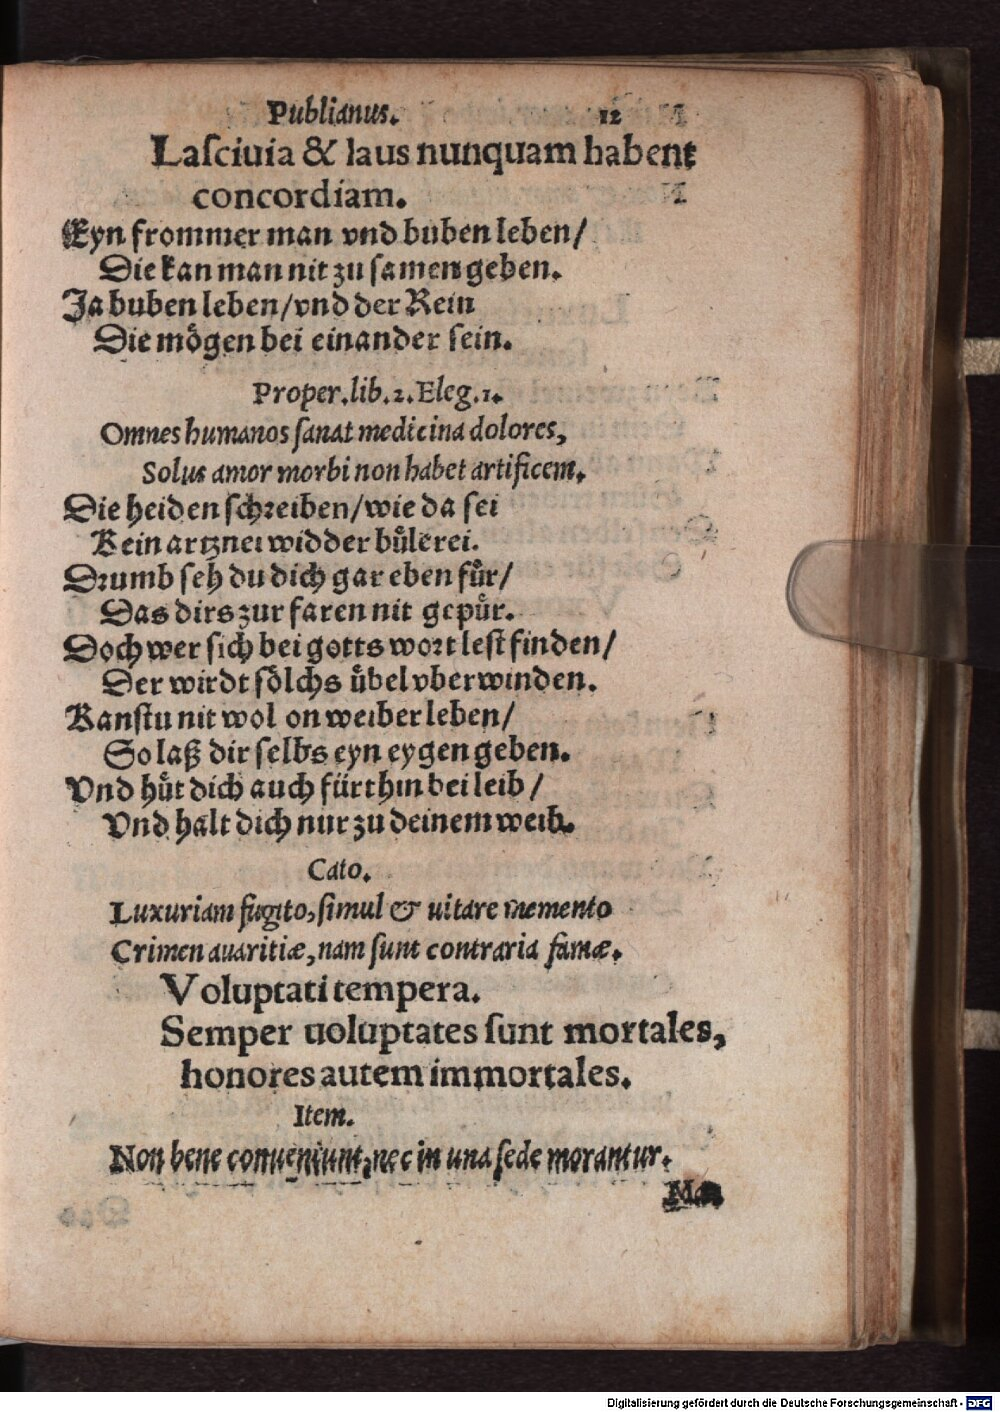 Publianus. 12
Lasciuia & laus nunquam habent
concordiam.
Eyn frommer man vnd buben leben/
Die kan man nit zu samen geben.
Ja buben leben/vnd der Rein
Die mögen bei einander sein.
Proper.lib.2.Eleg.1.
Omnes humanos ſanat medicina dolores,
Solus amor morbi non habet artificem.
Die heiden schreiben/wie da sei
Kein artznei widder bůlerei.
Drumb seh du dich gar eben fůr/
Das dirs zur faren nit gepůr.
Doch wer sich bei gotts wort lest finden/
Der wirdt sölchs übel vberwinden.
Kanstu nit wol on weiber leben/
So laß dir selbs eyn eygen geben.
Vnd hüt dich auch fürthin bei leib/
Vnd halt dich nur zu deinem weib.
Cato.
Luxuriam fugito, ſimul & uitare memento
Crimen auaritiæ, nam ſunt contraria famæ.
Voluptati tempera.
Semper uoluptates ſunt mortales,
honores autem immortales.
Item.
Non bene conueniunt, nec in una ſede morantur.
Digitalisierung gefördert durch die Deutsche Forschungsgemeinschaft - DFG